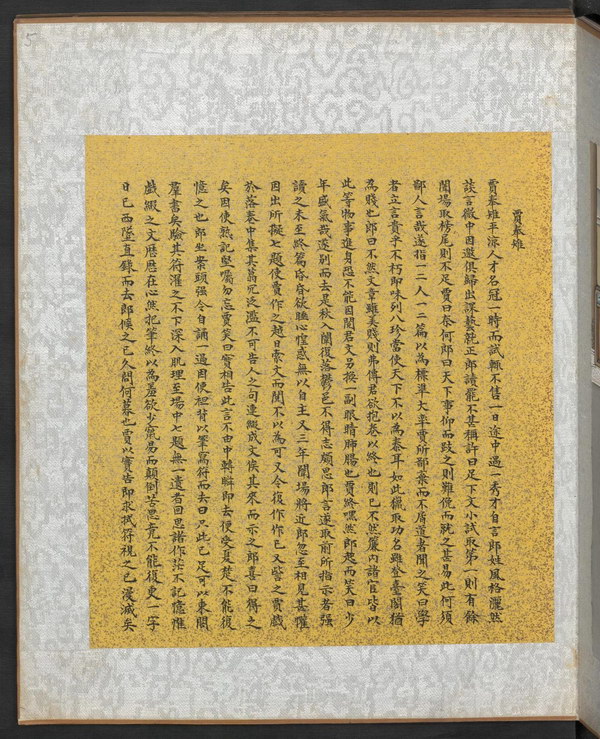 5
賈奉雉
賈奉雉平涼人才名冠一時而試輒不售一日途中遇一秀才自言郎姓風格灑然
談言微中因邀俱歸出課藝就正郎讀罷不甚稱許曰足下文小試取第一則有餘
闈場取榜尾則不足賈曰奈何郎曰天下事仰而跂之則難俛而就之甚易此何須
鄙人言哉遂指一二人一二篇以為標準大率賈所鄙棄而不屑道者聞之笑曰學
者立言貴乎不朽即味列八珍當使天下不以為泰耳如此獵取功名雖登臺閣猶
為賤也郎曰不然文章雖美賤則弗傳君欲抱卷以終也則已不然簾內諸官皆以
此等物事進身恐不能因閱君文另換一副眼睛肺腸也賈終嘿然郎起而笑曰少
年盛氣哉遂別而去是秋入闈復落鬱邑不得志頗思郎言遂取前所指示者強
讀之未至終篇昏昏欲睡心惶惑無以自主又三年闈場將近郎忽至相見甚懽
因出所擬七題使賈作之越日索文而閱不以為可又令復作作已又訾之賈戲
於落卷中集其蓊冗泛濫不可告人之句連綴成文俟其來而示之郎喜曰得之
矣因使熟記堅囑勿忘賈笑曰實相告此言不由中轉瞬即去便受夏楚不能復
憶之也郎坐案頭強令自誦一過因使袒背以筆寫符而去曰只此已足可以束閣
羣書矣驗其符濯之不下深入肌理至場中七題無一遺者回思諸作茫不記憶惟
戲綴之文歷歷在心然把筆終以為羞欲少竄易而顛倒苦思竟不能復更一字
日已西墜直錄而去郎候之已久問何暮也賈以實告即求拭符視之已漫滅矣